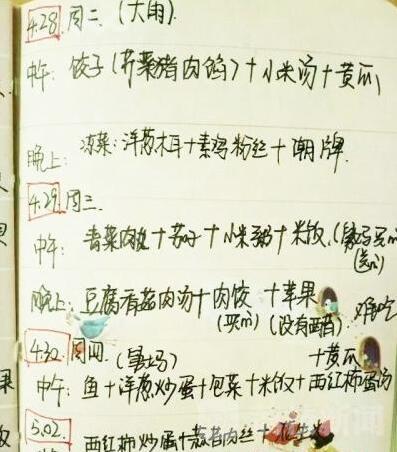 4.28.周二.(大雨).
中午: 饺子(芹菜猪肉馅)+小米汤+黄瓜
晚上: 凉菜:洋葱木耳+素鸡粉丝+朝牌.
4.29.周三.
中午: 青菜肉丝+茄子+小米粥+米饭.
晚上: 豆腐香菇肉汤+肉饺+苹果
(买的) (没有醋) 难吃
4.30 周四. (暑妈) +黄瓜
中午: 鱼+洋葱炒蛋+包菜+米饭+西红柿蛋汤
5.02.
西红柿炒蛋+肉丝+